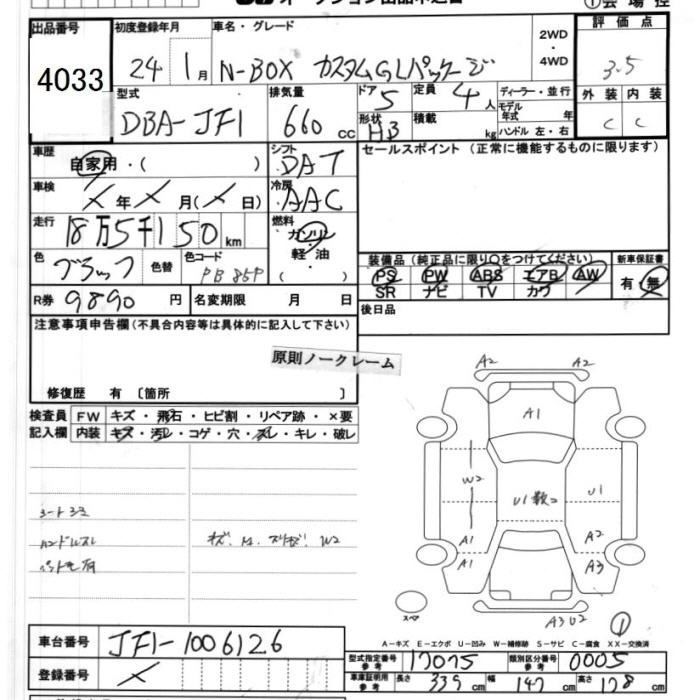 出品番号
4033
初度登録年月
24 1月
車名・グレード
N-BOX カスタムGLパッケージ
2WD
・
4WD
評価点
3.5
外装 内装
C C
型式
DBA-JF1
排気量
660 cc
ドア 5
形状 HB
定員 4人
積載 kg
ディーラー・並行
モデル年式 年
ハンドル 左・右
車歴
自家用・( )
シフト
DAT
車検
X年X月(X日)
冷房
AAC
走行
18万5千150km
燃料
ガソリン
・
軽油
( )
色
ブラック
色替
色コード
PB85P
R券 9890円
名変期限 月 日
セールスポイント(正常に機能するものに限ります)
装備品(純正品に限り○をつけてください)
PS PW ABS エアB AW
SR ナビ TV カワ
新車保証書
有・無
後日品
注意事項申告欄(不具合内容等は具体的に記入して下さい)
原則ノークレーム
修復歴 有〔箇所 〕
検査員
記入欄
FW キズ・飛石・ヒビ割・リペア跡・×要
内装 キズ・汚レ・コゲ・穴・スレ・キレ・破レ
シートシミ
ハンドルスレ
ペット毛有
キズ.
W2
A2 A2
A1
W2
U1数コ
U1
A1 A2
A1 A3
A3U2
スペア
①
A-キズ E-エクボ U-凹み W-補修跡 S-サビ C-腐食 XX-交換済
車台番号
JF1-1006126
登録番号
X
型式指定番号
参考
17075
類別区分番号
参考
0005
車庫証明用
参考
長さ 339cm
幅 147cm
高さ 178cm